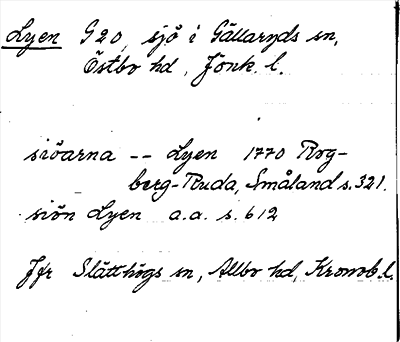 Lyen G20, sjö i Gällaryds sn,
Östbo hd, Jönk. l.
siöarna -- Lyen 1770 Rog-
berg-Ruda, Småland s. 321.
siön Lyen a.a. s. 612
Jfr Slätthögs sn, Allbo hd, Kronob. l.